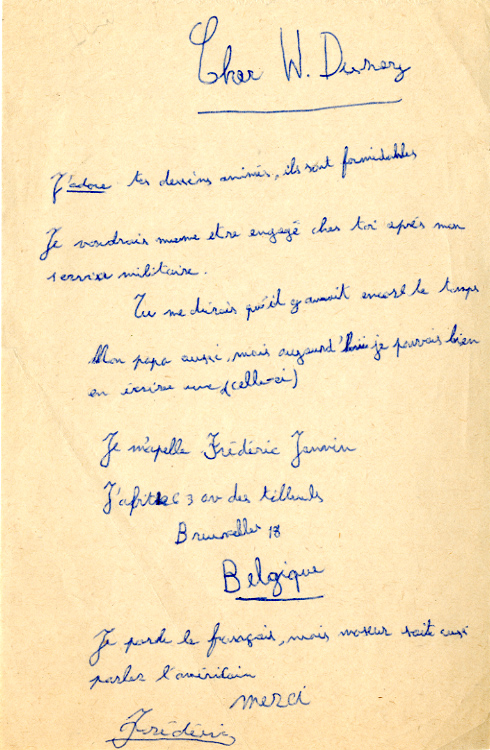 Cher W. Disney
J'adore tes dessins animés, ils sont formidables
Je voudrais meme etre engagé ches toi aprés mon
service militaire.
Tu me dirais qu'il y aurait encore le temps
Mon papa aussi, mais aujourd'hui je pouvais bien
en écrire une (celle-ci)
Je m'apelle Frédéric Jannin
J'abite 3 av des tilleuls
Bruxelles 18
Belgique
Je parle le français, mais ma seur sait aussi
parler l'américain
merci
Frédéric